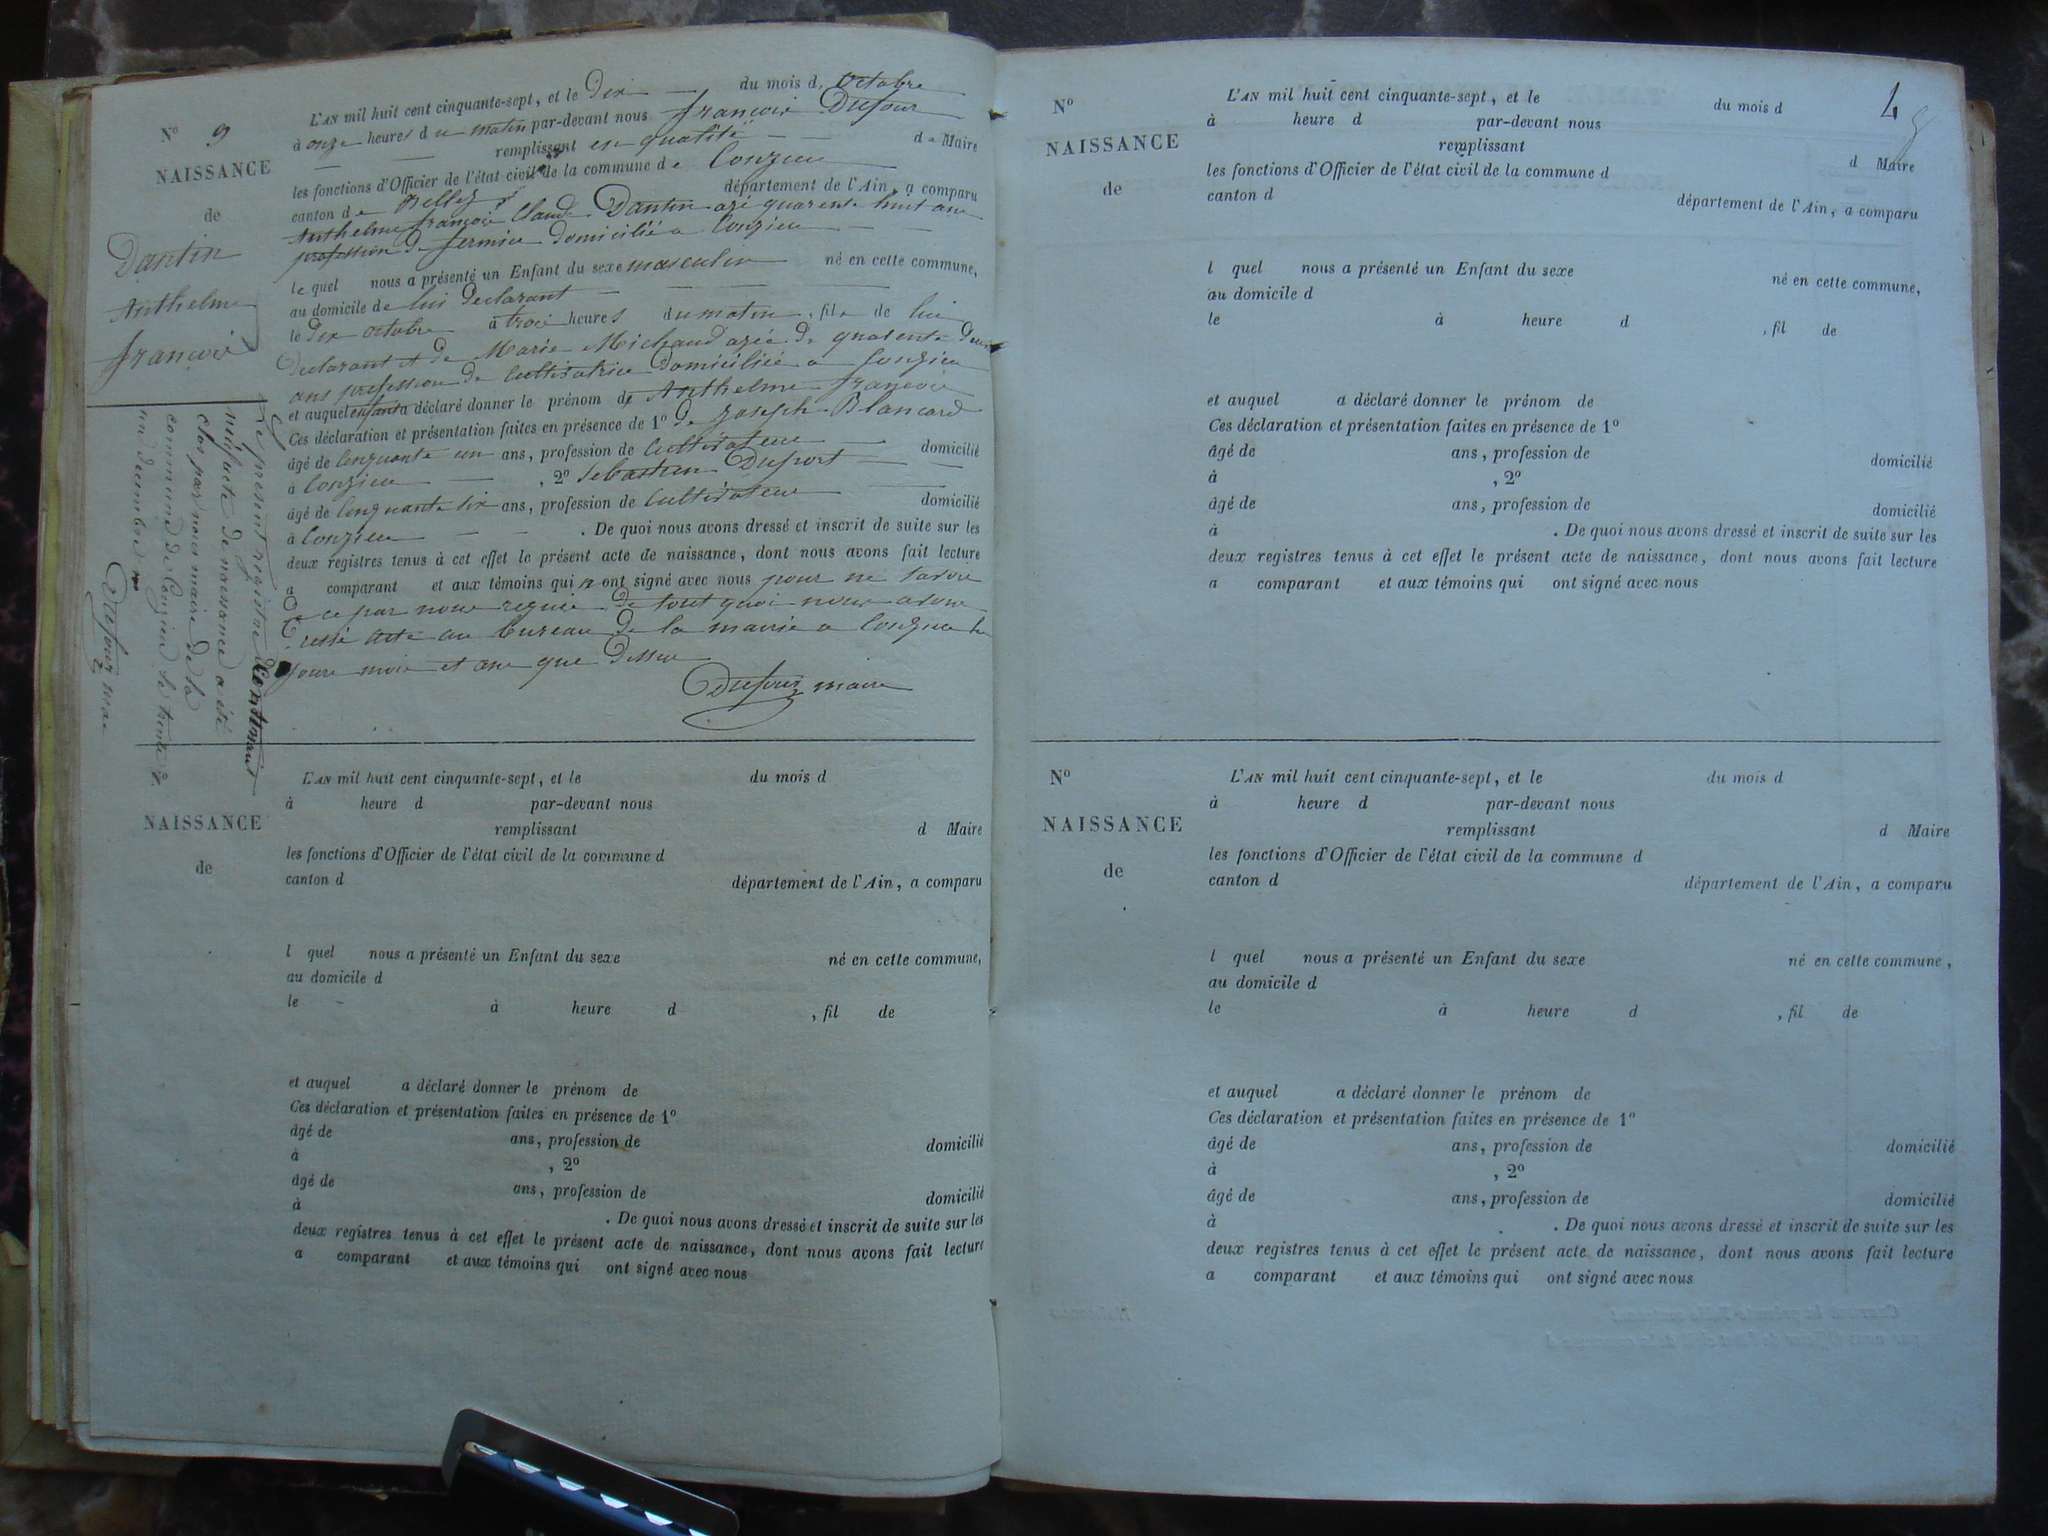 N° 9
NAISSANCE
de
Dantin
Anthelme
françois
L'AN mil huit cent cinquante-sept, et le Dix du mois d'Octobre
à onze heures du matin par-devant nous françois Dufour
remplissant en qualité de Maire
les fonctions d'Officier de l'état civil de la commune de Conzieu
canton de Belley département de l'Ain, a comparu
Anthelme françois Claude Dantin agé quarente huit ans
profession de fermier domicilié a Conzieu
lequel nous a présenté un Enfant du sexe masculin né en cette commune,
au domicile de lui declarant
le dix octobre à trois heures du matin, fils de lui
declarant et de Marie Michaud agée de quarente deux
ans profession de Cultivatrice domiciliée a Conzieu
et auquel enfant a déclaré donner le prénom de Anthelme françois
Ces déclaration et présentation faites en présence de 1° de Joseph Blancard
âgé de Cenquante un ans, profession de Cultivateur domicilié
à Conzieu, 2° Sebastien Dufort
âgé de Cenquante six ans, profession de Cultivateur domicilié
à Conzieu. De quoi nous avons dressé et inscrit de suite sur les
deux registres tenus à cet effet le présent acte de naissance, dont nous avons fait lecture
a comparant et aux témoins qui n ont signé avec nous pour ne savoir
de ce par nous requis de tout quoi nous avons
acte au bureau de la mairie a Conzieu le
jour mois et an que Dessus
Dufour maire
Le présent registre Contenant
neuf acte de naissance a été
clos par nous maire de la
commune de Conzieu le trente
un decembre
Dufour maire
L'AN mil huit cent cinquante-sept, et le du mois d
à heure d par-devant nous
remplissant d Maire
NAISSANCE
les fonctions d'Officier de l'état civil de la commune d
de
canton d département de l'Ain, a comparu
l quel nous a présenté un Enfant du sexe né en cette commune,
au domicile d
le à heure d , fil de
et auquel a déclaré donner le prénom de
Ces déclaration et présentation faites en présence de 1°
âgé de ans, profession de domicilié
à , 2°
âgé de ans, profession de domicilié
à . De quoi nous avons dressé et inscrit de suite sur les
deux registres tenus à cet effet le présent acte de naissance, dont nous avons fait lecture
a comparant et aux témoins qui ont signé avec nous
N°
L'AN mil huit cent cinquante-sept, et le du mois d
à heure d par-devant nous
NAISSANCE
remplissant d Maire
les fonctions d'Officier de l'état civil de la commune d
de
canton d département de l'Ain, a comparu
l quel nous a présenté un Enfant du sexe né en cette commune,
au domicile d
le à heure d , fil de
et auquel a déclaré donner le prénom de
Ces déclaration et présentation faites en présence de 1°
âgé de ans, profession de domicilié
à , 2°
âgé de ans, profession de domicilié
à . De quoi nous avons dressé et inscrit de suite sur les
deux registres tenus à cet effet le présent acte de naissance, dont nous avons fait lecture
a comparant et aux témoins qui ont signé avec nous
N°
L'AN mil huit cent cinquante-sept, et le du mois d
à heure d par-devant nous
NAISSANCE
remplissant d Maire
les fonctions d'Officier de l'état civil de la commune d
de
canton d département de l'Ain, a comparu
l quel nous a présenté un Enfant du sexe né en cette commune,
au domicile d
le à heure d , fil de
et auquel a déclaré donner le prénom de
Ces déclaration et présentation faites en présence de 1°
âgé de ans, profession de domicilié
à , 2°
âgé de ans, profession de domicilié
à . De quoi nous avons dressé et inscrit de suite sur les
deux registres tenus à cet effet le présent acte de naissance, dont nous avons fait lecture
a comparant et aux témoins qui ont signé avec nous